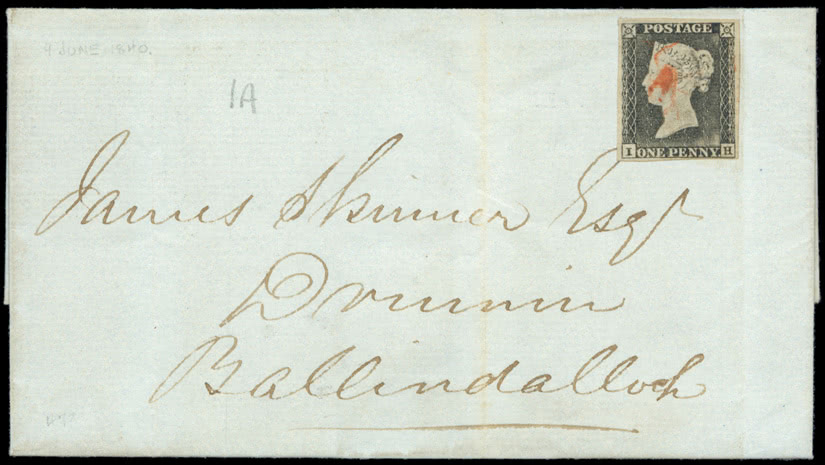 POSTAGE
4 JUNE 1840.
1A
ONE PENNY
I H
James Skinner Esqr
Drumin
Ballindalloch